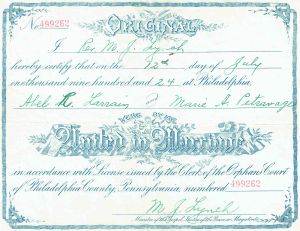 No. 499262
ORIGINAL
I Rev. M. J. Lynch
hereby certify that on the 12th day of July
one thousand nine hundred and 24 at Philadelphia,
Abel R. Larrain & Marie A. Petravage
WERE BY ME
United in Marriage
in accordance with License issued by the Clerk of the Orphans Court
of Philadelphia County, Pennsylvania, numbered 499262
M. J. Lynch
Minister of the Gospel, Justice of the Peace or Magistrate